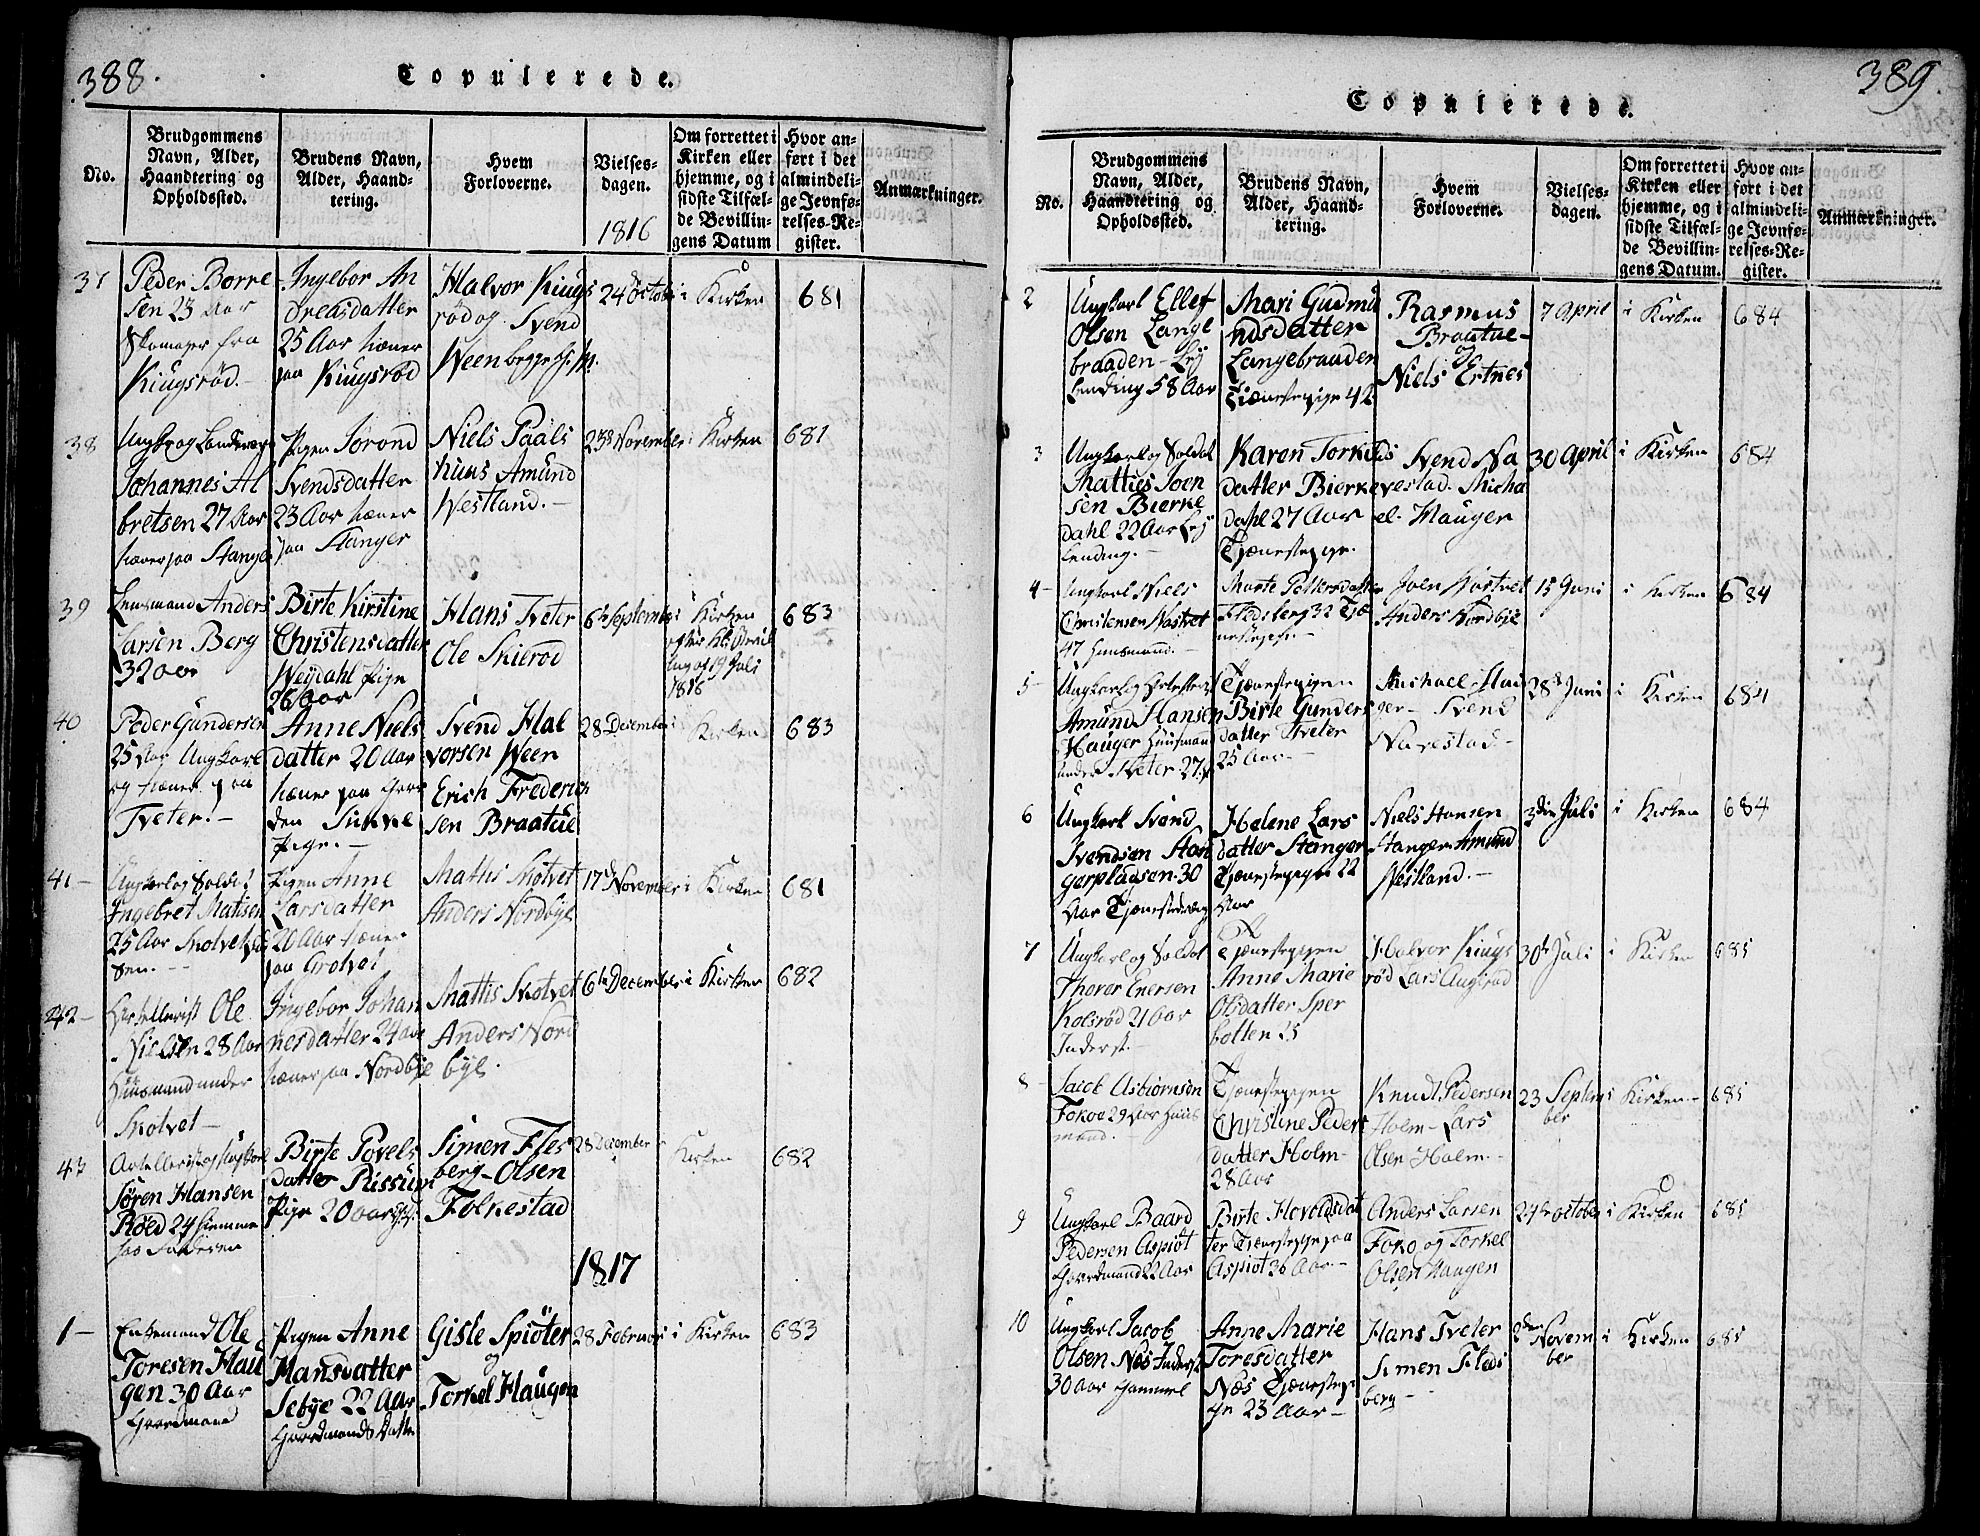 388.
Copulerede.
No.
Brudgommens
Navn, Alder,
Haandtering og
Opholdssted.
Brudens Navn,
Alder, Haand-
tering.
Hvem
Forloverne.
Vielses-
dagen.
1816
Om forrettet i
Kirken eller
hjemme, og i
sidste Tilfæl-
de Bevillin-
gens Datum
Hvor an-
ført i det
almindeli-
ge Jevnfø-
relses-Re-
gister.
Anmærkninger.
37
Peder Borre-
sen 23 Aar
fra
Kiugsrød.
Ingebor An
dreasdatter
25 Aar
paa Kiugsrød
Halvor Kiugs
rød og Svend
Ween begge
24de Octobr
i Kirken
681
38
Ungkr og
Johannes Al
bretsen 27 Aar
Pigen Torond
Svendsdatter
23 Aar
paa Stanger
Niels Paals
huus Amund
Westland.-
23de November
i Kirken
681
39
Lensmand Anders
Larsen Berg
32 aar
Birte Kirstine
Christensdatter
Weydahl Pige
26 Aar
Hans Tveter
Ole Skierød
6te September
i Kirken
19 Juli
1816
683
40
Peder Gundersen
25 Aar Ungkarl
og paa
Tveter.-
Anne Niels
datter 20 Aar
den Sukke
Pige.-
Svend Hal
vorsen Ween
Erich Frederich
sen Braatue
28 December
i Kirken
683
41-
Ungkarl og Soldat
Ingebret Matisen
25 Aar
Pigen Anne
Larsdatter
20 Aar
paa Grotvet
Mattis Skotvet
Anders Nordbye
17de November
i Kirken
681
42-
Ole
Nielsen 28 Aar
Huusmand under
Skotvet-
Ingebor Johan
nesdatter 24 aar
paa Nordbye
Mattis Skotvet
Anders Nord
bye.
6te December
i Kirken
682
43
Artellerist og Ungkarl
Søren Hansen
Røed 24
Birte Povels
datter Rissum
Pige 20 aar
Simen Fles
berg- Olsen
Folkestad
28 December
i Kirken
682
1817
1-
Enkemand Ole
Toresen Hau
gen 30 Aar
Gaardmand
Pigen Anne
Hansdatter
Sebye 22 Aar
Gaardmands Datter
Gisle Spiøter
og
Torkel Haugen
28 Februar
i Kirken
683
389.
Copulerede.
No.
Brudgommens
Navn, Alder,
Haandtering og
Opholdssted.
Brudens Navn,
Alder, Haand-
tering.
Hvem
Forloverne.
Vielses-
dagen.
Om forrettet i
Kirken eller
hjemme, og i
sidste Tilfæl-
de Bevillin-
gens Datum.
Hvor an-
ført i det
almindeli-
ge Jevnfø-
relses-Re-
gister.
Anmærkninger.
2
Ungkarl Ellef
Olsen Lange
braaden- Ley
lending 58 Aar
Mari Gudmu
ndsdatter
Langebraaden
Tjenestepige 42
Rasmus
Braatue-
og
Niels Ertnes
7 April
i Kirken
684
3
Ungkarl og Soldat
Matties Joen
sen Bierke
dahl 22 Aar Ley
lending.-
Karen Torkilds
datter Bierke
dahl 27 Aar
Tjenestepige.
Svend Na
vestad. Micha
el. Hauger
30 April
i Kirken
684
4-
Ungkarl Niels
Christensen
47 Huusmand.-
Marte Pettersdatter
Fledsberg 32 Tje
nestepige.-
Joen
Anders Nordbye
15 Juni
i Kirken
684
5-
Ungkarl og
Amund Hansen
Hauger Huusmand
under Tveter. 27
Tjenestepigen
Birte Gunders
datter Tveter
25 Aar.-
Michael Hau
ger- Svend
Navestad-
28de Juni
i Kirken
684
6
Ungkarl Svend
Svendsen Stan
gerpladsen. 30
Aar
Helene Lars
datter Stanger
Tjenestepige 22
Aar
Niels Hansen
Stanger. Amund
Vestland.-
3die Juli
i Kirken
684
7
Ungkarl og Soldat
Thorer Enersen
Kolsrød 21 Aar
Inderst.-
Tjenestepigen
Anne Marie
Olsdatter Sper
botten 25
Halvor Kiugs
rød Lars
30te Juli
i Kirken
685
8-
Jacob Asbiornsen
Fokoe 29 Aar Huus
mand.-
Tjenestepigen
Christine Peders
datter Holm-
28 Aar
Knudt Pedersen
Holm- Lars
Olsen Holm.-
23 Septem
ber
i Kirken-
685
9
Ungkarl Baard
Pedersen Aspiøt
Gaardmand 22 Aar
Birte Havoldsdat
ter Tjenestepige paa
Aspiøt 36 Aar.-
Anders Larsen
Foko og Torkel
Olsen Haugen
24de October
i Kirken
685
10
Ungkarl Jacob
Olsen Næs Inderst
30 Aar gammel
Anne Marie
Toresdatter
Næs Tjenestepi
ge 23 Aar-
Hans Tveter
Simen Fleds
berg-
2den Novem
ber
i Kirken
685